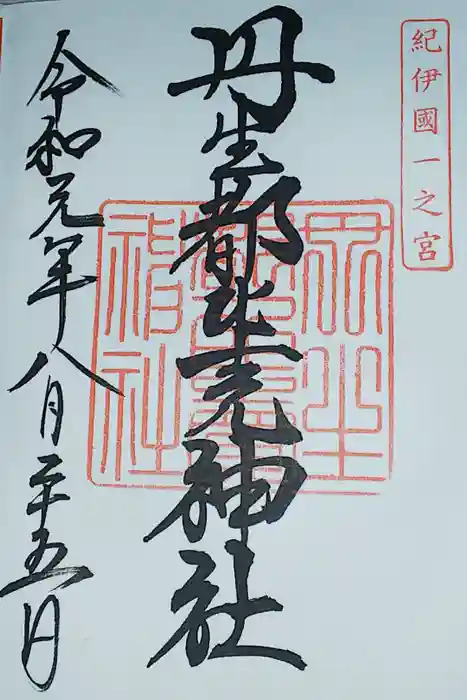 紀伊國一之宮
丹生都比売神社
丹生都比賣神社
令和元年八月二十五日